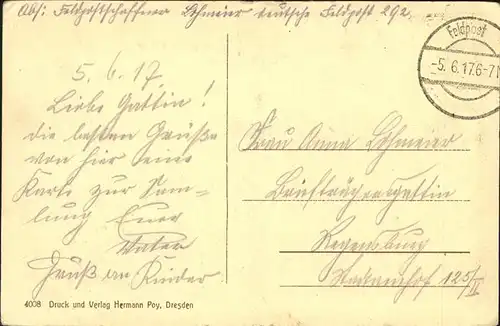 Abs: Feldpostschaffner Lohmeier deutsche Feldpost 292.
Feldpost
-5. 6. 17. 6-7 N
5. 6. 17.
Liebe Gattin!
die besten Grüße
von hier eine
Karte zur Sam-
lung Euer
Vater
Gruß an Kinder
Frau Anna Lohmeier
Briefträgersgattin
Regensburg
Stadtamhof 125/II
4008 Druck und Verlag Hermann Poy, Dresden